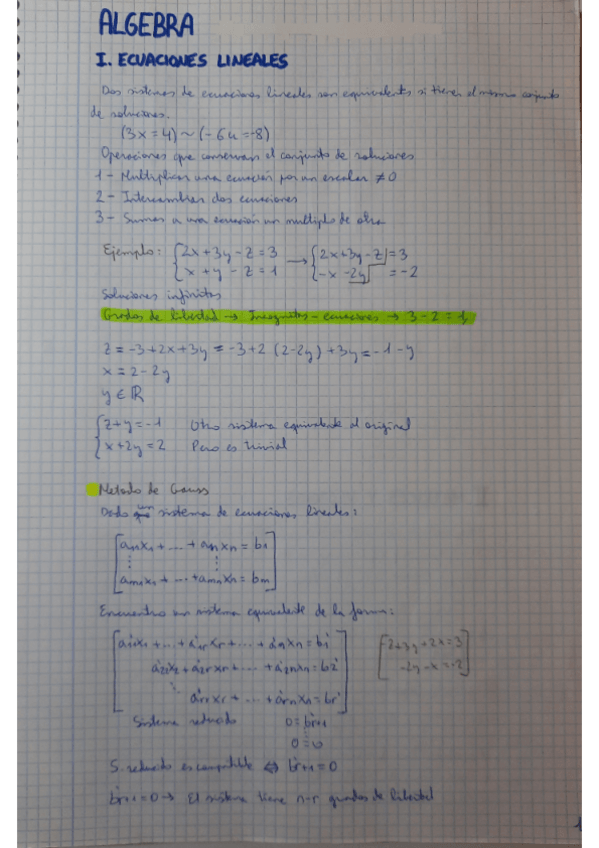 ALGEBRA
I. ECUACIONES LINEALES
Dos sistemas de ecuaciones lineales son equivalentes si tienen el mismo conjunto
de soluciones.
(3x = 4) ~ (-6u = -8)
Operaciones que conservan el conjunto de soluciones
1 - Multiplicar una ecuación por un escalar ≠ 0
2 - Intercambiar dos ecuaciones
3 - Sumar a una ecuación un multiplo de otra
Ejemplo: { 2x + 3y - z = 3 → { 2x + 3y - z = 3
{ x + y - z = 1 { -x - 2y = -2
Soluciones infinitas
Grados de libertad → Incognitas - ecuaciones → 3 - 2 = 1
z = -3 + 2x + 3y = -3 + 2 (2 - 2y) + 3y = -1 - y
x = 2 - 2y
y ∈ ℝ
{ z + y = -1 Otro sistema equivalente al original
{ x + 2y = 2 Pero es trivial
Metodo de Gauss
Dado un sistema de ecuaciones lineales:
a11x1 + ... + a1nxn = b1
⋮ ⋮
am1x1 + ... + amnxn = bm
Encuentro un sistema equivalente de la forma:
a'11x1 + ... + a'1rxr + ... + a'1nxn = b'1
a'22x2 + a'2rxr + ... + a'2nxn = b'2
⋱ a'rrxr + ... + a'rnxn = b'r
-2y - x = -2
Sistema reducido 0 = b'r+1
0 = 0
S. reducido es compatible ⇔ b'r+1 = 0
b'r+1 = 0 → El sistema tiene n-r grados de libertad
1